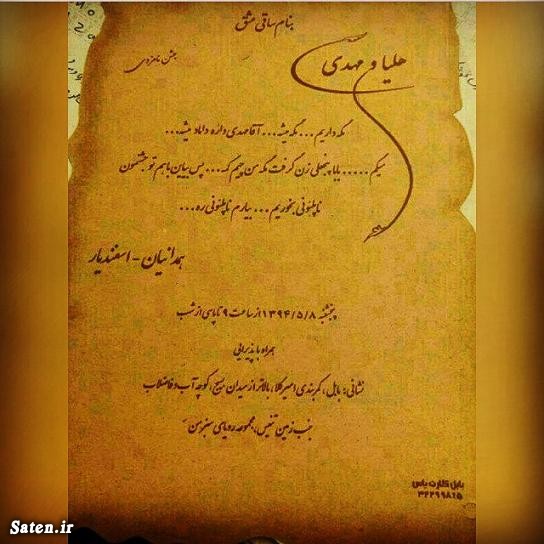 بنام ساقی عشق
جشن نامزدی
هلیا و مهدی
مگه داریم ... مگه میشه ... آقا مهدی داره داماد میشه ...
میگم ..... بابا پنجعلی زن گرفت مگه من چیم که ... پس بیاین باهم تو جشنمون
ناپلئونی بخوریم ... بیارم ناپلئونی ره ...
همدانیان - اسفندیار
پنجشنبه ۱۳۹۴/۵/۸ از ساعت ۹ تا پاسی از شب
همراه با پذیرایی
نشانی: بابل، کمربندی امیرکلا، بالاتر از میدان بسیج، کوچه آب و فاضلاب
جنب زمین تنیس، مجموعه رویای سبز من
بابل کارت یاس
۳۲۲۹۹۸۲۵
Saten.ir